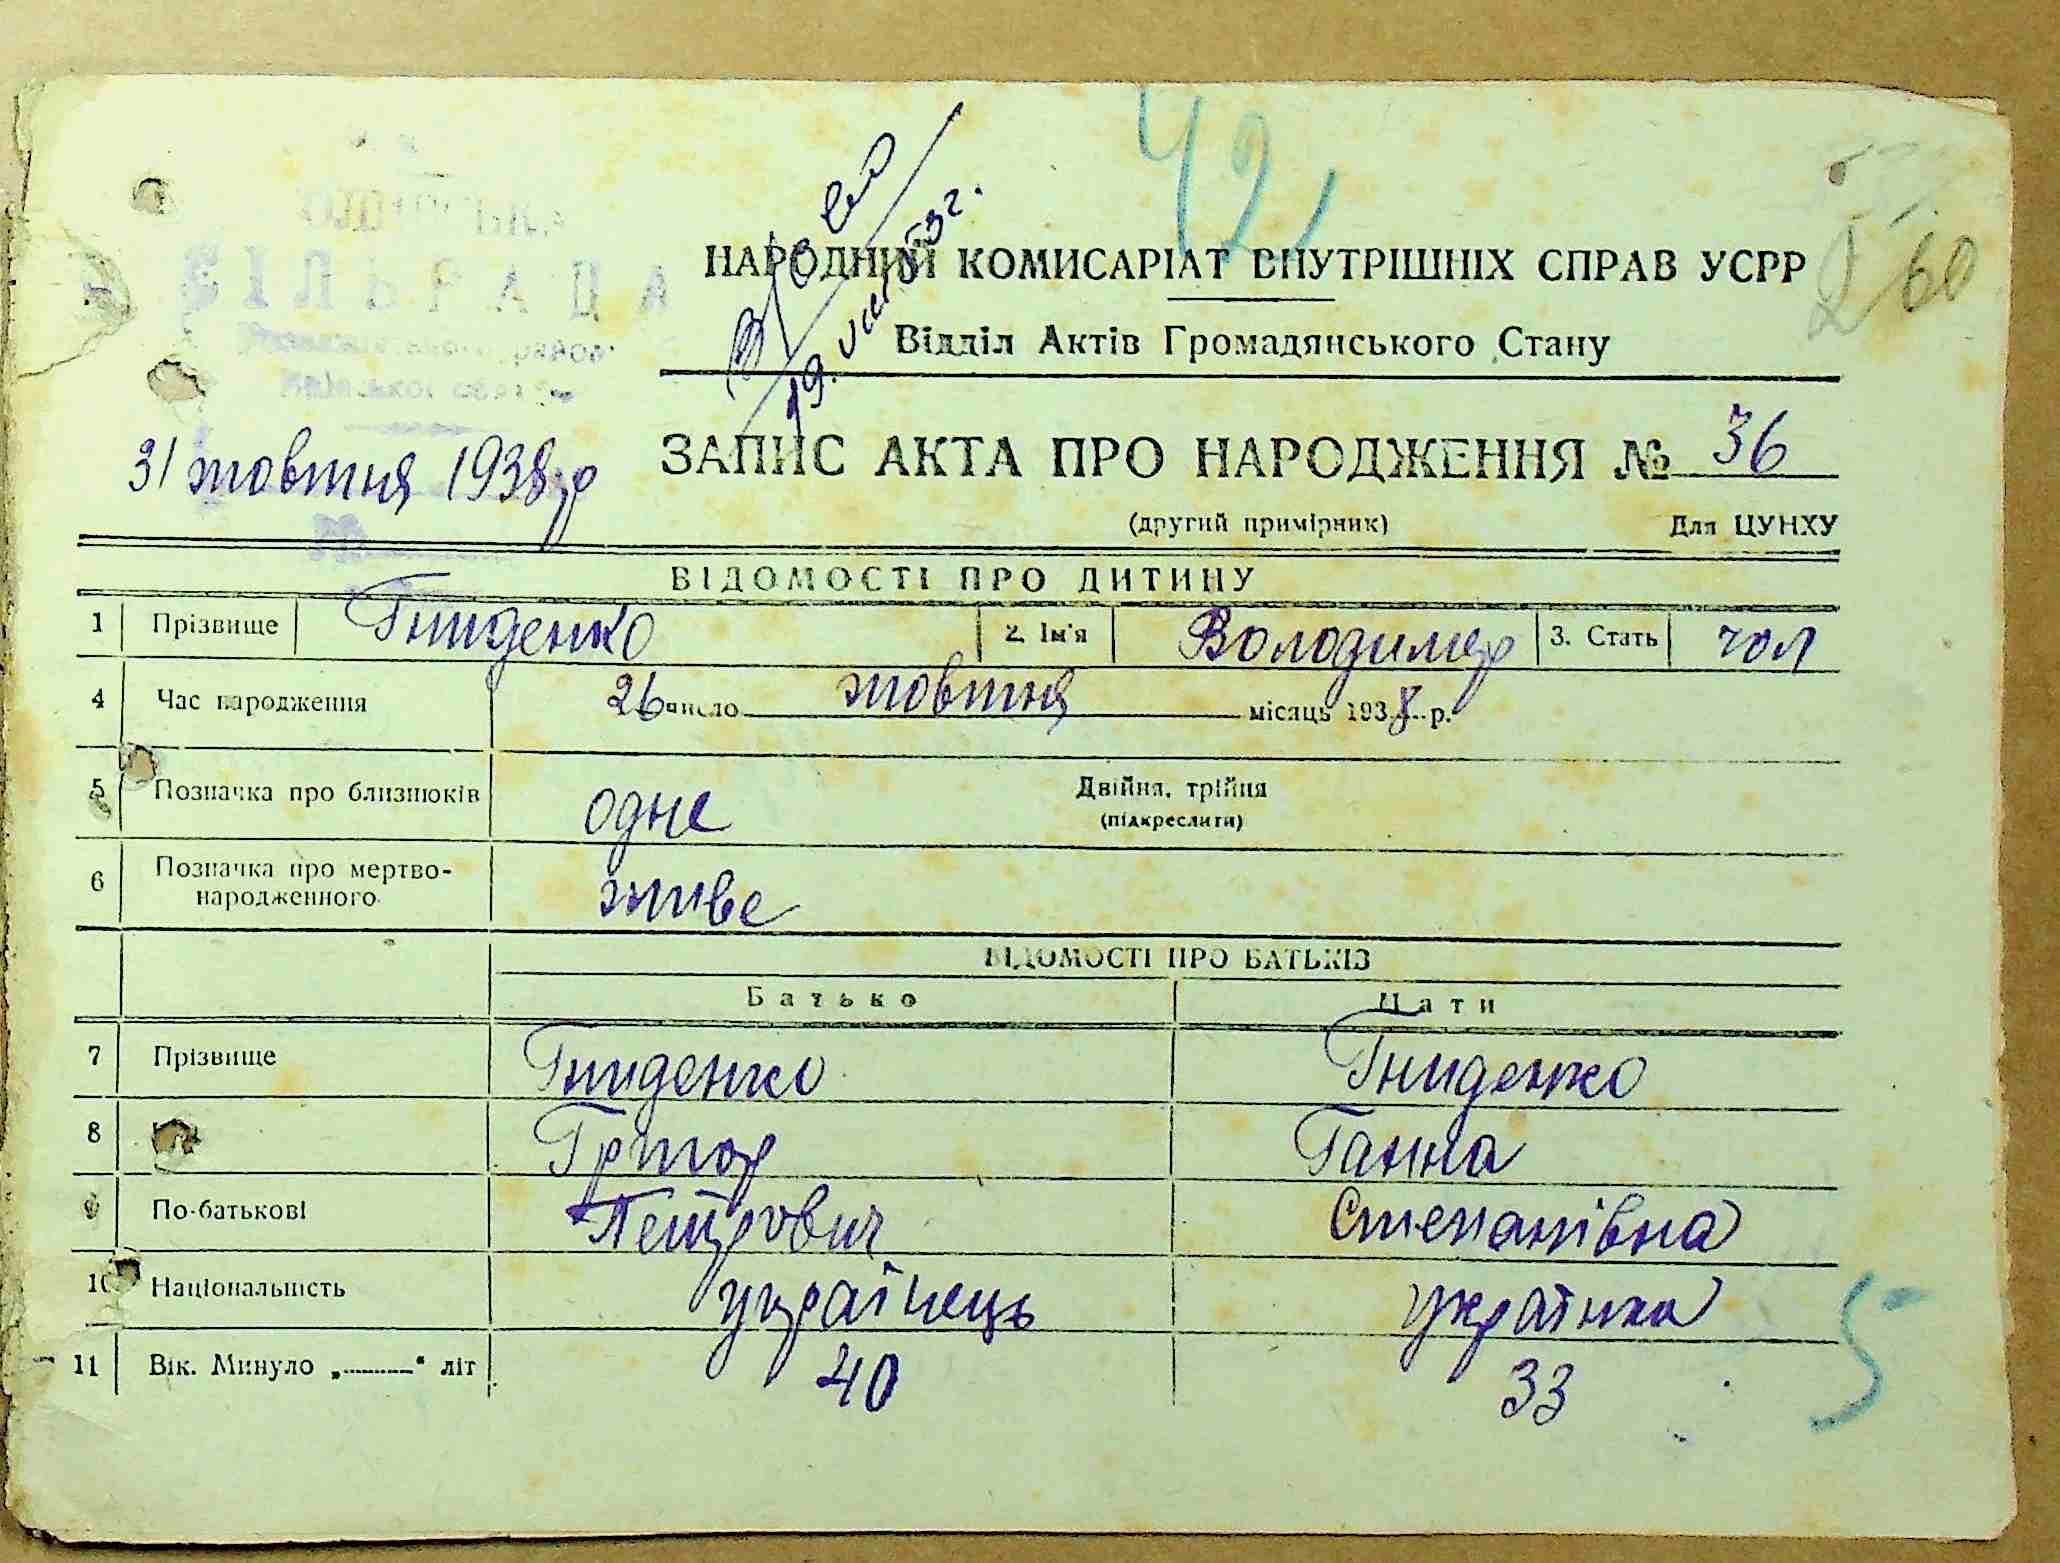 42
НАРОДНИЙ КОМИСАРІАТ ВНУТРІШНІХ СПРАВ УСРР
60
СІЛЬРАДА
району
Відділ Актів Громадянського Стану
31 жовтня 1938 р
ЗАПИС АКТА ПРО НАРОДЖЕННЯ № 36
(другий примірник) Для ЦУНХУ
ВІДОМОСТІ ПРО ДИТИНУ
1 Прізвище Гниденко 2. Ім'я Володимер 3. Стать чол
4 Час народження 26 число жовтня місяць 1938 р.
5 Позначка про близнюків одне Двійня, трійня
(підкреслити)
6 Позначка про мертво-
народженного живе
ВІДОМОСТІ ПРО БАТЬКІВ
Батько Мати
7 Прізвище Гниденко Гниденко
8 Григор Ганна
9 По-батькові Петрович Степанівна
10 Національність українець українка
11 Вік. Минуло „ “ літ 40 33
5